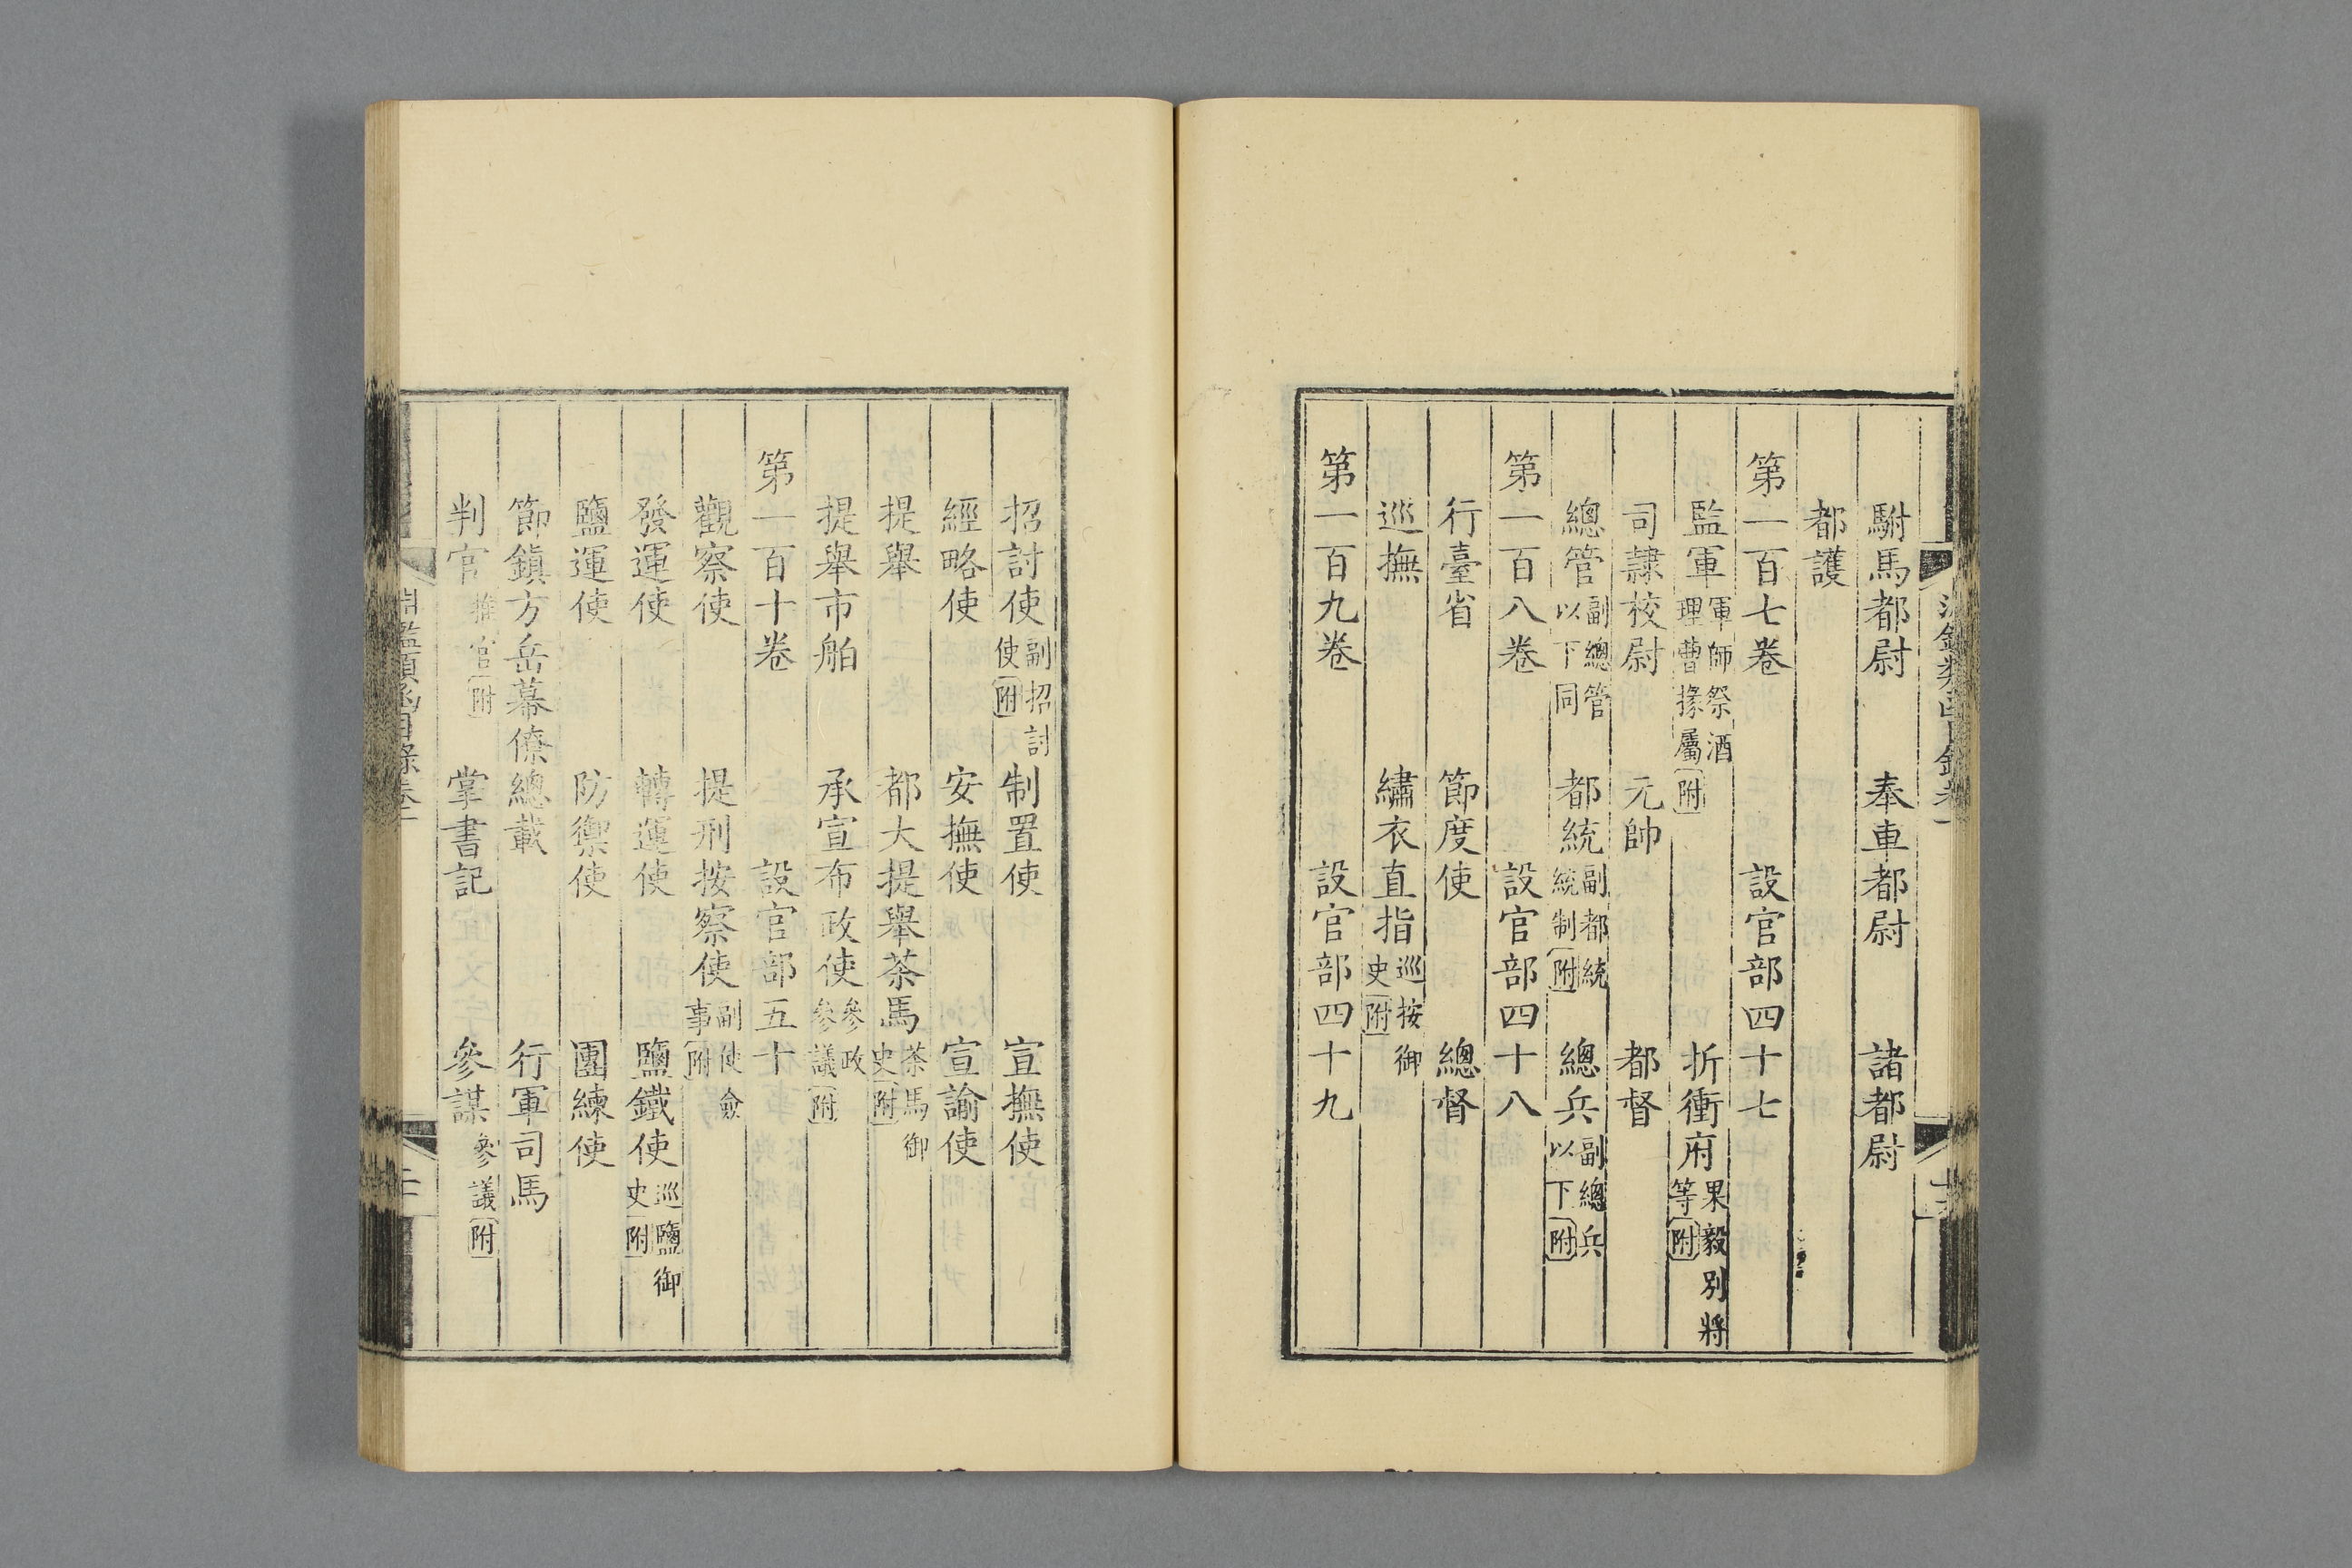 駙馬都尉 奉車都尉 諸都尉
都護
第一百七卷 設官部四十七
監軍 軍師祭酒理曹掾屬附 折衝府 果毅別將等附
司隸校尉 元帥 都督
總管 副總管以下同 都統 副都統統制附 總兵 副總兵以下附
第一百八卷 設官部四十八
行臺省 節度使 總督
巡撫 繡衣直指 巡按御史附
第一百九卷 設官部四十九
招討使 副招討使附 制置使 宣撫使
經略使 安撫使 宣諭使
提舉 都大提舉茶馬 茶馬御史附
提舉市舶 承宣布政使 參政參議附
第一百十卷 設官部五十
觀察使 提刑按察使 副使僉事附
發運使 轉運使 鹽鐵使 巡鹽御史附
鹽運使 防禦使 團練使
節鎮方岳幕僚總載 行軍司馬
判官 推官附 掌書記 參謀 參議附
淵鑑類函目錄卷一